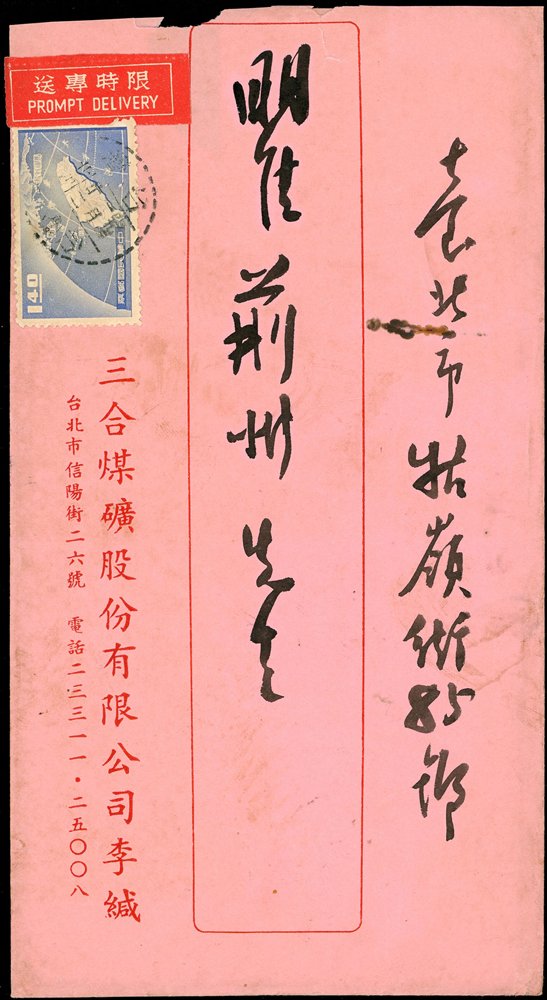 臺北市牯嶺街85號
瞿荆州先生
限時專送
PROMPT DELIVERY
140
三合煤礦股份有限公司李緘
台北市信陽街二六號 電話二三三一一・二五〇〇八